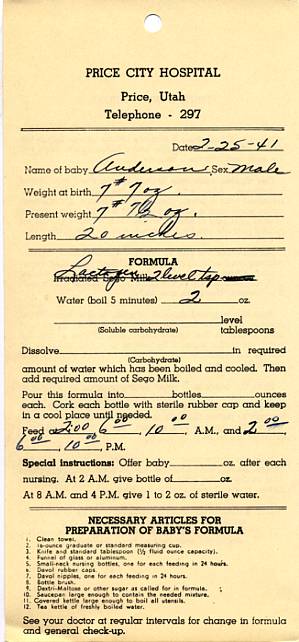 PRICE CITY HOSPITAL
Price, Utah
Telephone - 297
Date 2-25-41
Name of baby Anderson Sex Male
Weight at birth 7# 7 oz.
Present weight 7# 7½ oz.
Length 20 inches.
FORMULA
Lactogen 2 level tsp
Irradiated Sego Milk
Water (boil 5 minutes) 2 oz.
level
(Soluble carbohydrate) tablespoons
Dissolve in required
(Carbohydrate)
amount of water which has been boiled and cooled. Then
add required amount of Sego Milk.
Pour this formula into bottles ounces
each. Cork each bottle with sterile rubber cap and keep
in a cool place until needed.
Feed at 2:00 6 00, 10 00, A.M., and 2 00,
6 00, 10 00, P.M.
Special instructions: Offer baby oz. after each
nursing. At 2 A.M. give bottle of oz.
At 8 A.M. and 4 P.M. give 1 to 2 oz. of sterile water.
NECESSARY ARTICLES FOR
PREPARATION OF BABY'S FORMULA
1. Clean towel.
2. 16-ounce graduate or standard measuring cup.
3. Knife and standard tablespoon (½ fluid ounce capacity).
4. Funnel of glass or aluminum.
5. Small-neck nursing bottles, one for each feeding in 24 hours.
6. Davol rubber caps.
7. Davol nipples, one for each feeding in 24 hours.
8. Bottle brush.
9. Dextri-Maltose or other sugar as called for in formula.
10. Saucepan large enough to contain the needed mixture.
11. Covered kettle large enough to boil all utensils.
12. Tea kettle of freshly boiled water.
See your doctor at regular intervals for change in formula
and general check-up.